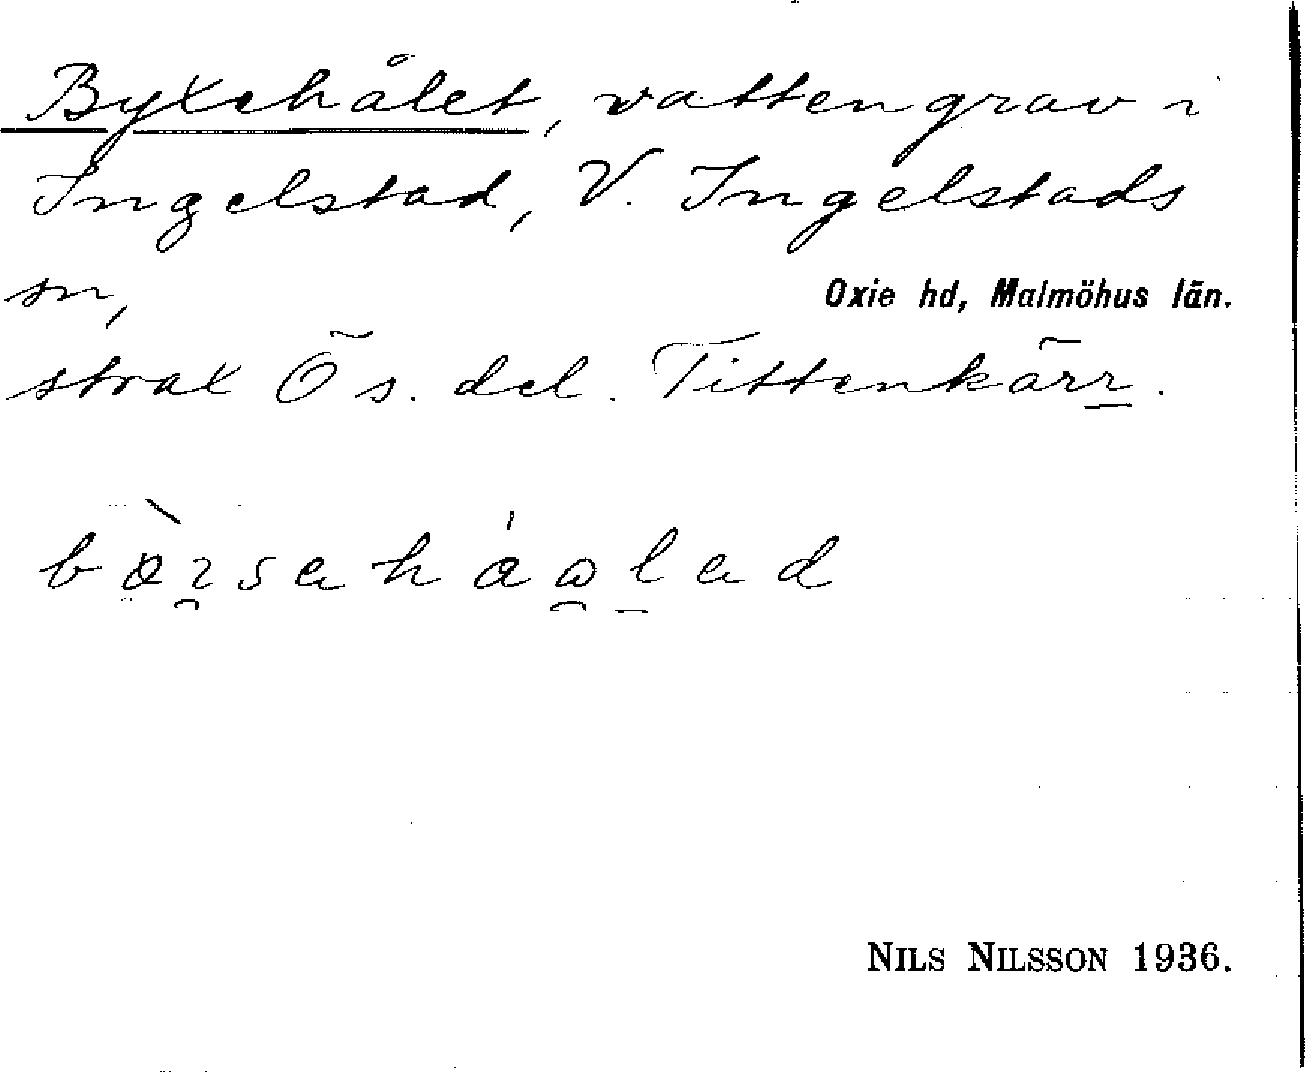 Byxehålet, vattengrav i
Ingelstad, V. Ingelstads
sn, Oxie hd, Malmöhus län.
strax Ö s. del. Tittenkärr.
NILS NILSSON 1936.